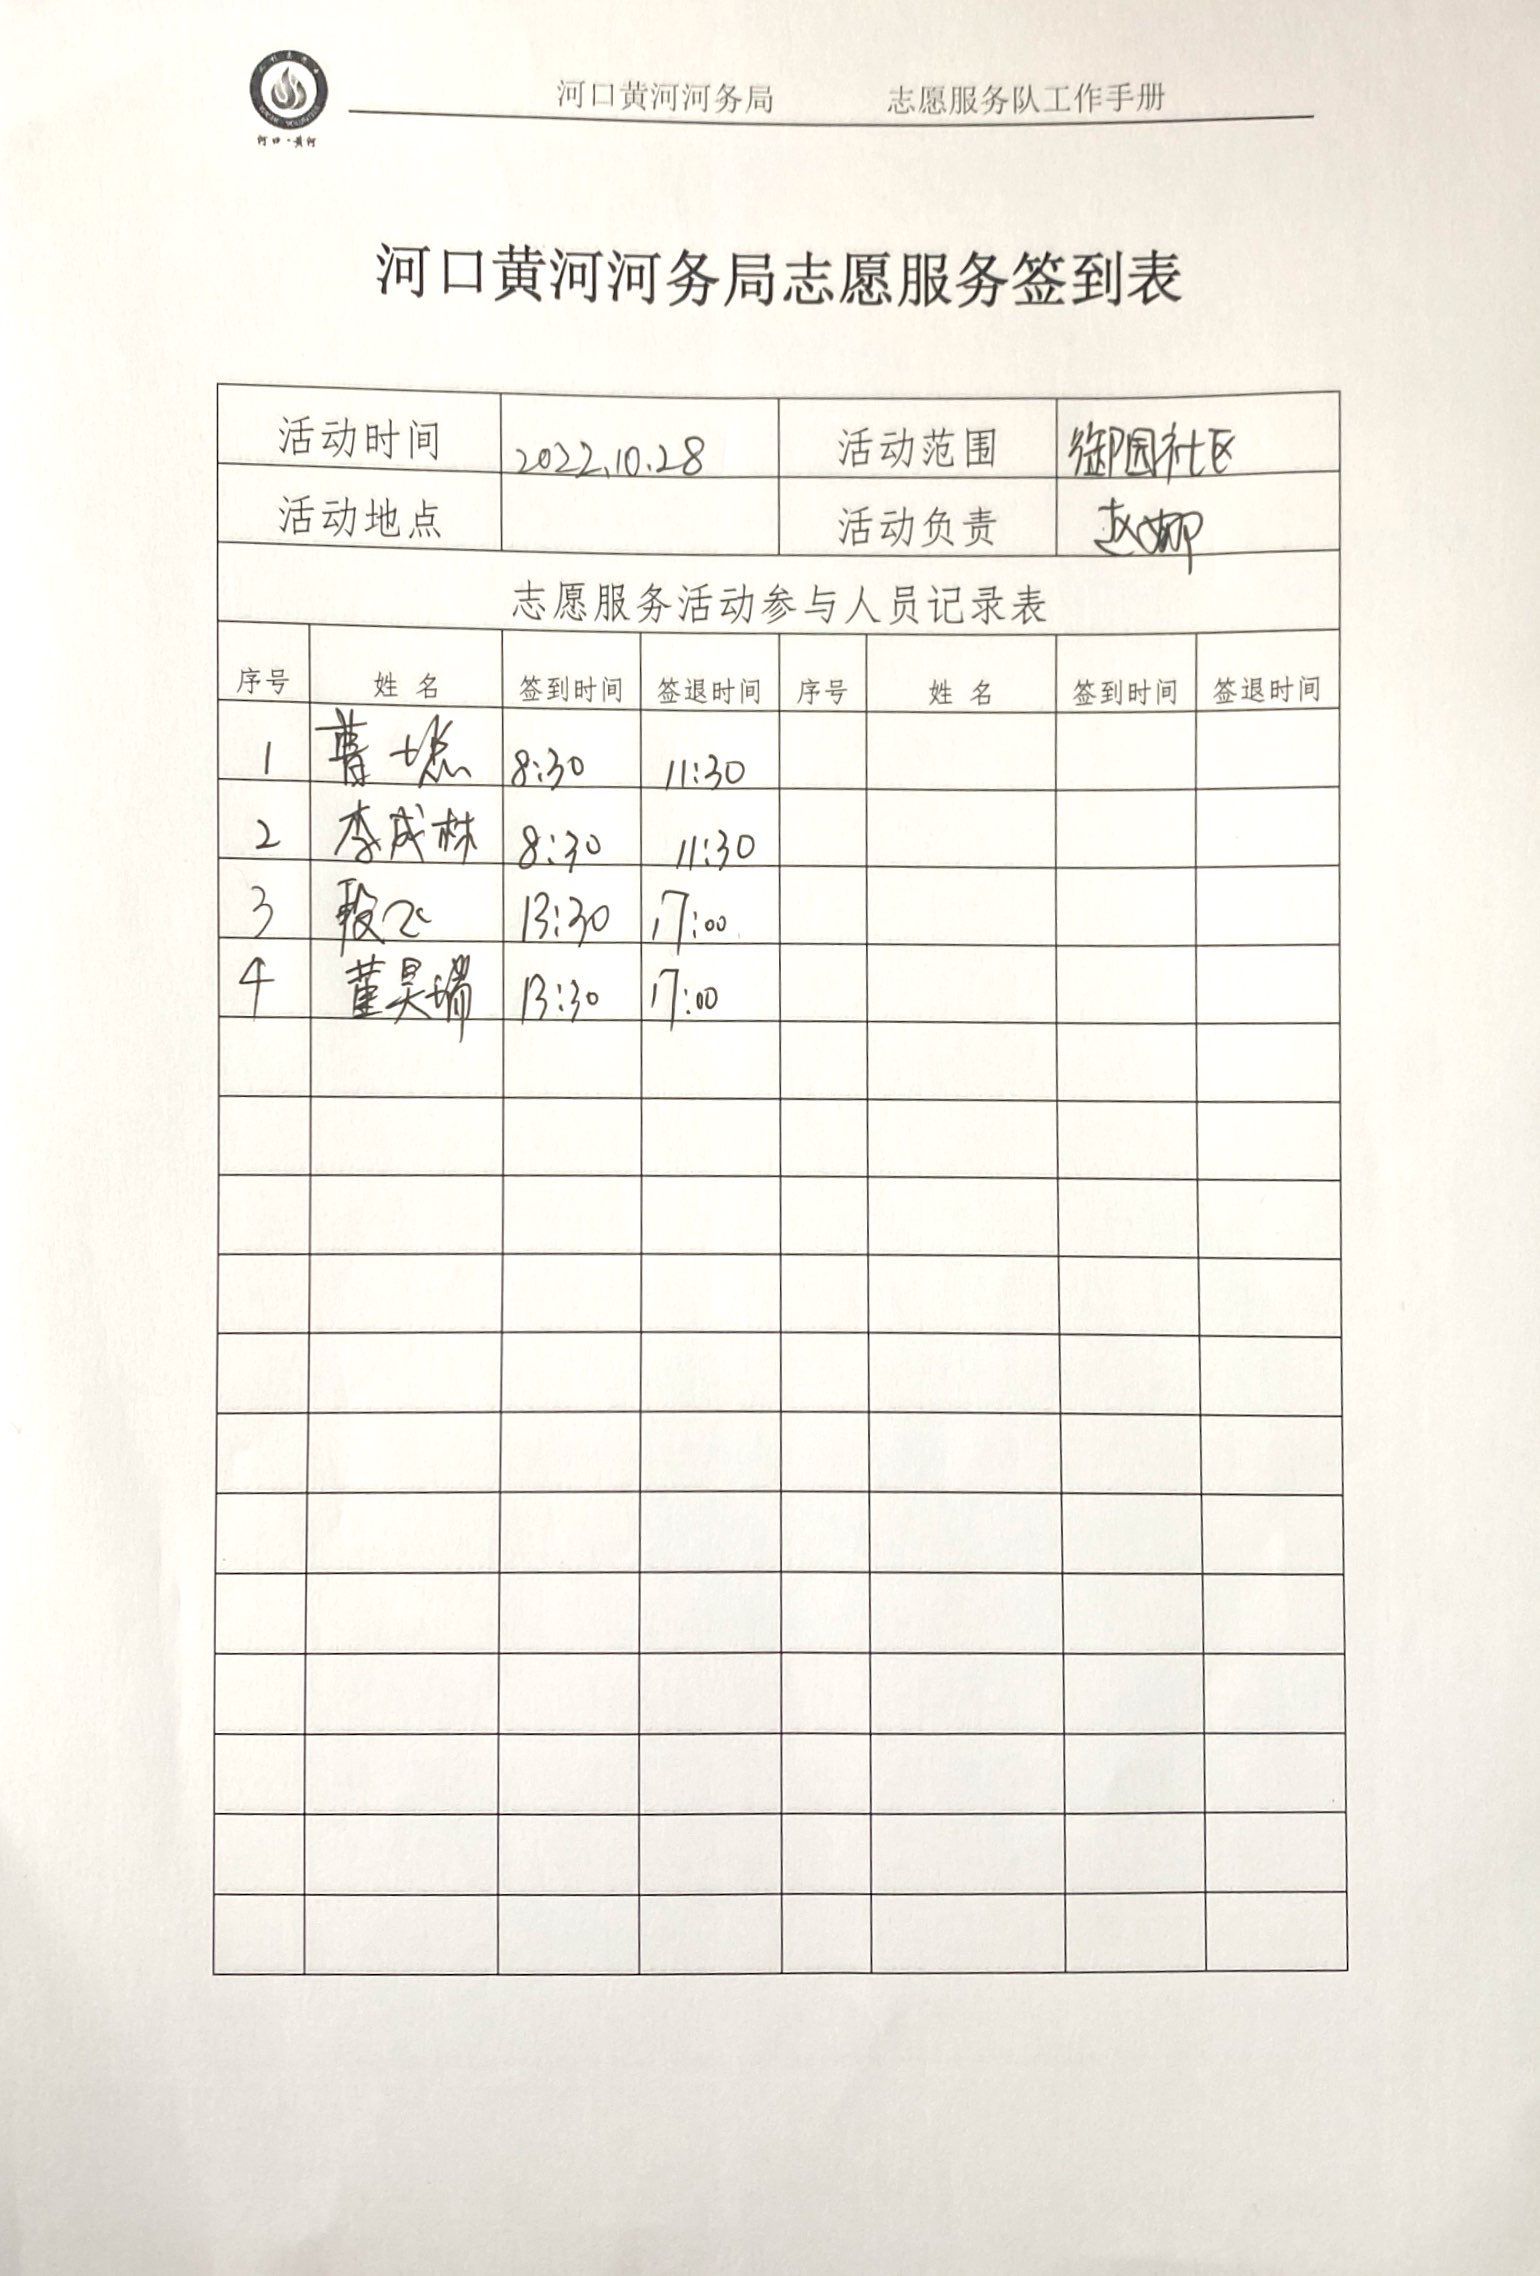 河口黄河河务局 志愿服务队工作手册
河口·黄河
河口黄河河务局志愿服务签到表
活动时间 2022.10.28 活动范围 御园社区
活动地点 活动负责 赵娜
志愿服务活动参与人员记录表
序号 姓名 签到时间 签退时间 序号 姓名 签到时间 签退时间
1 曹 8:30 11:30
2 李成林 8:30 11:30
3 段飞 13:30 17:00
4 董昊瑞 13:30 17:00